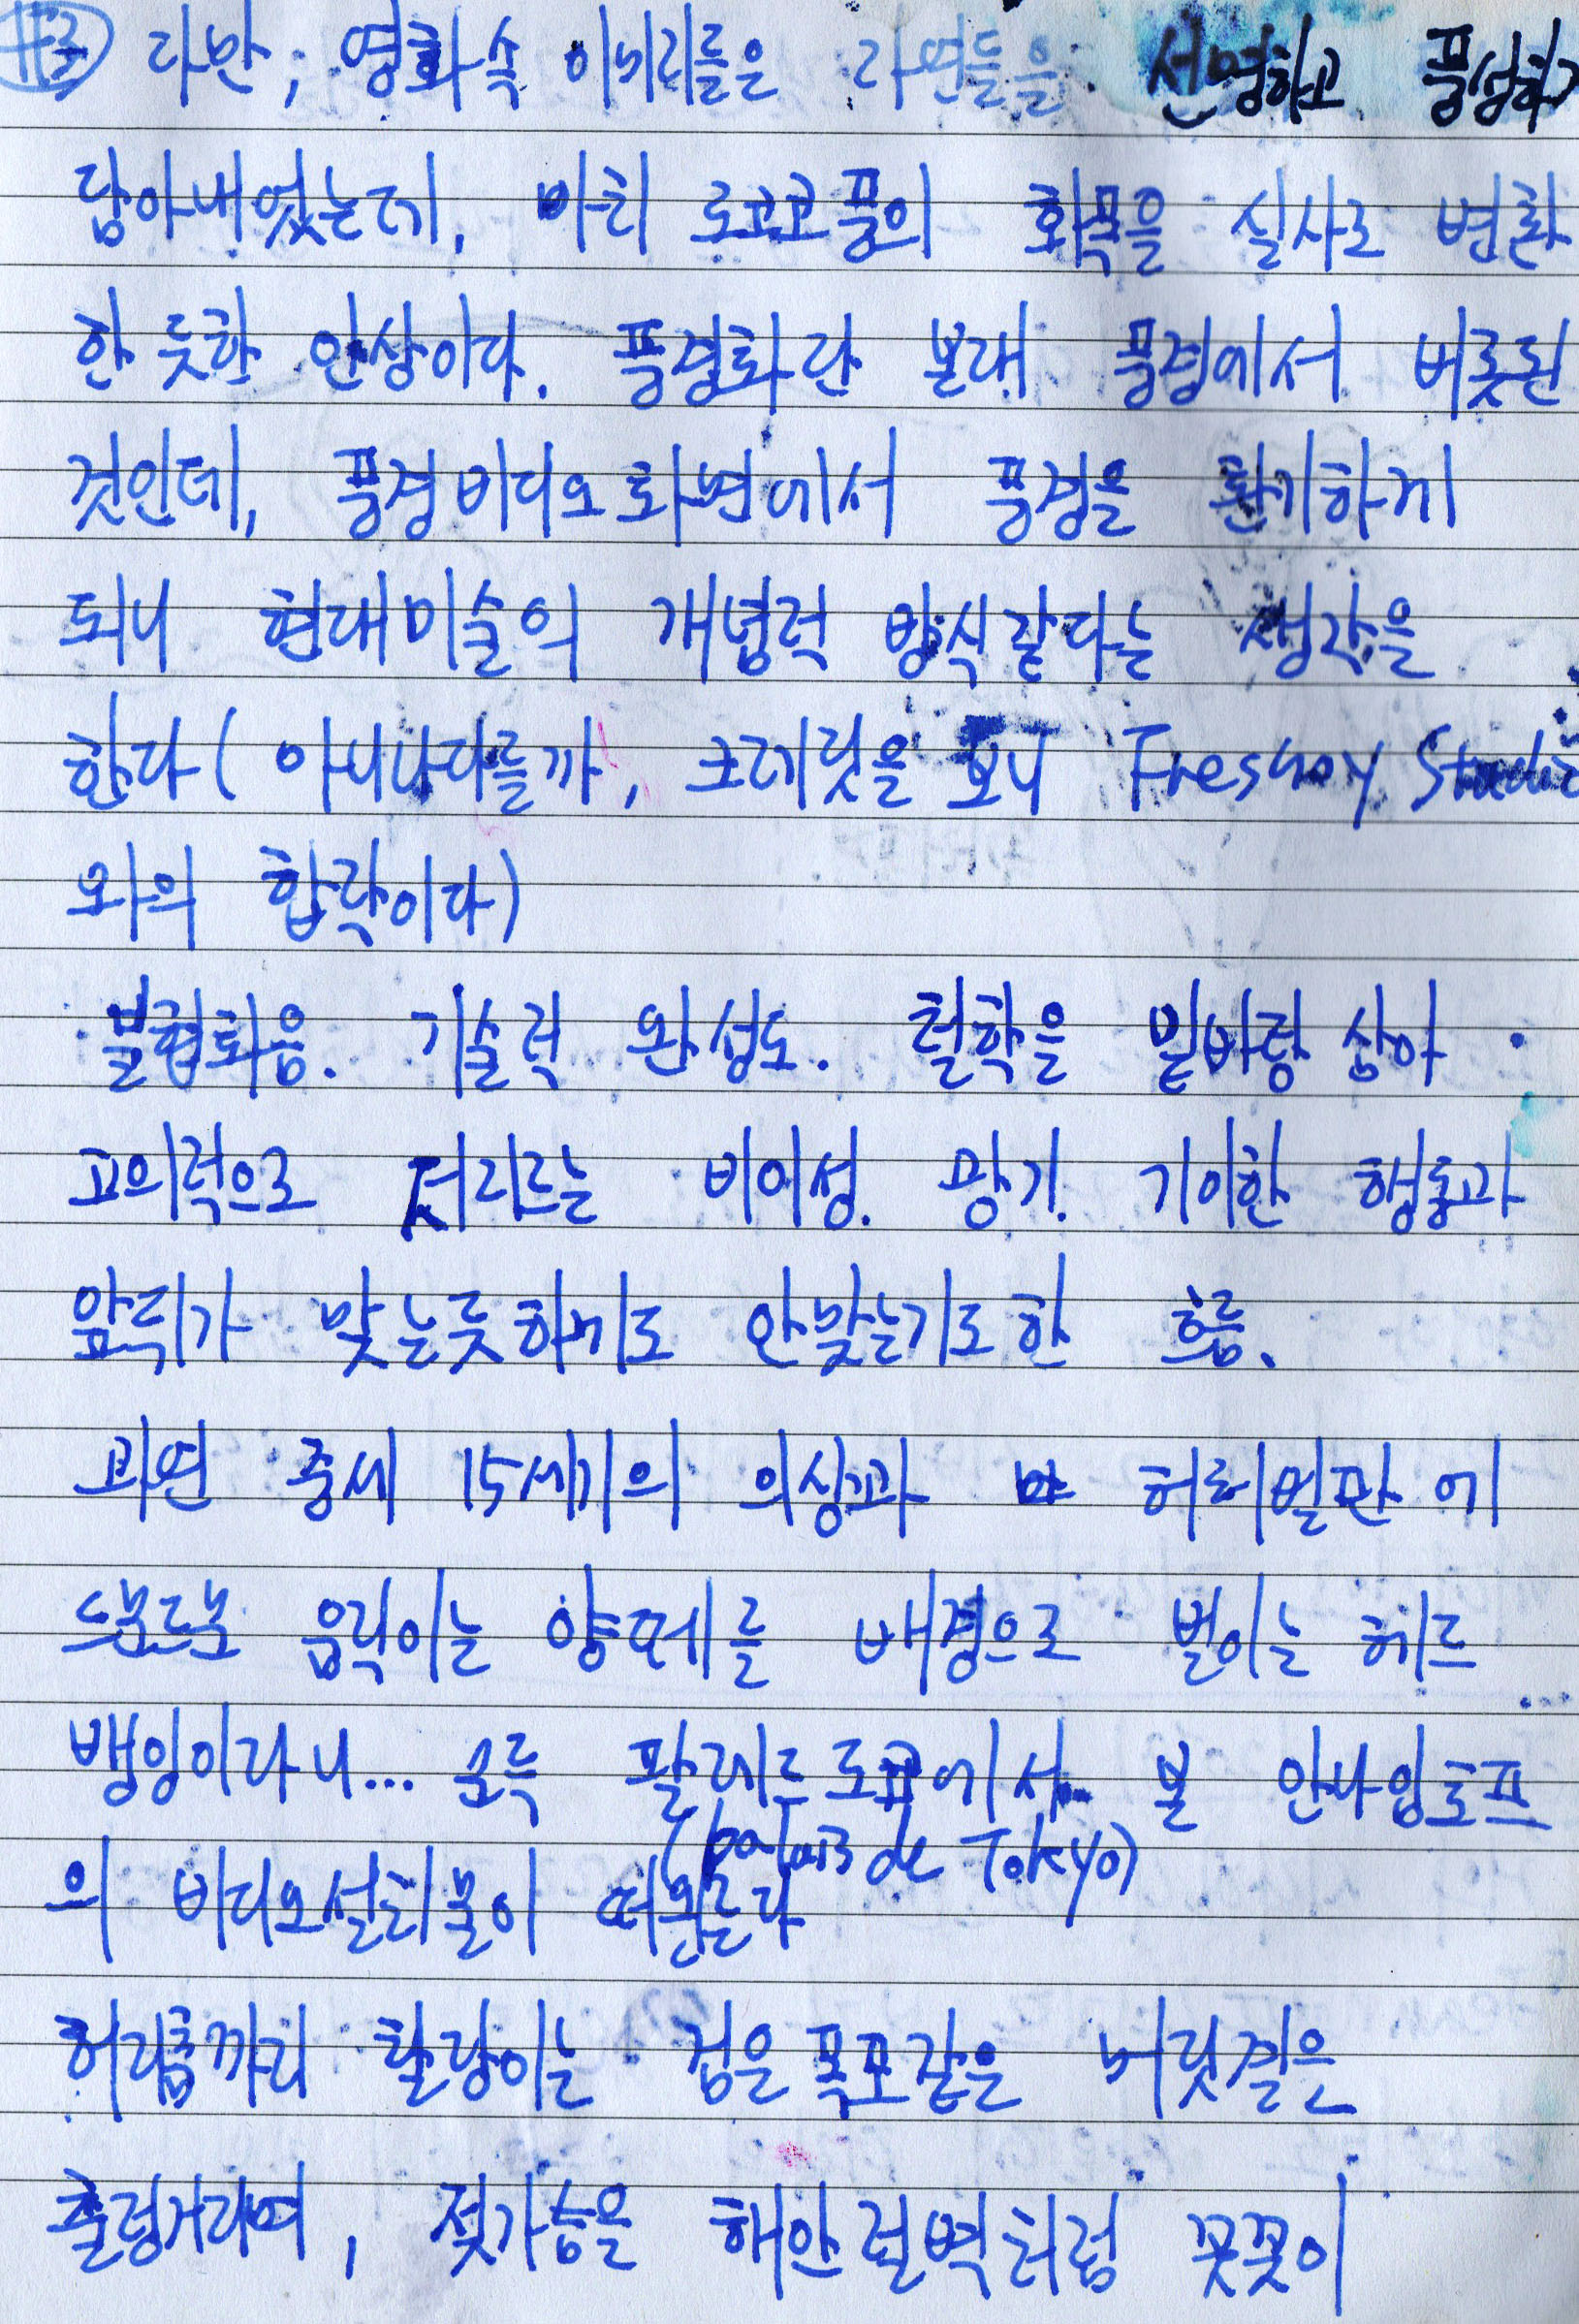 #3 다만, 영화속 이미지들은 자연들을 선명하고 풍성하게
담아내었는데, 마치 로코코풍의 화폭을 실사로 변환
한 듯한 인상이다. 풍경화란 본래 풍경에서 비롯된
것인데, 풍경비디오화면에서 풍경을 환기하게
되니 현대미술의 개념적 방식같다는 생각을
한다( 아니나다를까, 크레딧을 보니 Fresnoy Studio
와의 합작이다)
불협화음. 기술적 완성도. 철학을 밑바탕 삼아
고의적으로 저지르는 비이성. 광기. 기이한 행동과
앞뒤가 맞는듯하게도 안맞는기도한 흐름.
과연 중세 15세기의 의상과 허허벌판에
드문드문 움직이는 양떼를 배경으로 벌이는 헤드
뱅잉이라니... 문득 팔레드도쿄에서 본 안나임호프
(palais de Tokyo)
의 비디오설치물이 떠오른다
허리춤까지 찰랑이는 검은폭포같은 머릿결은
출렁거리며, 젖가슴을 해안절벽처럼 꼿꼿이